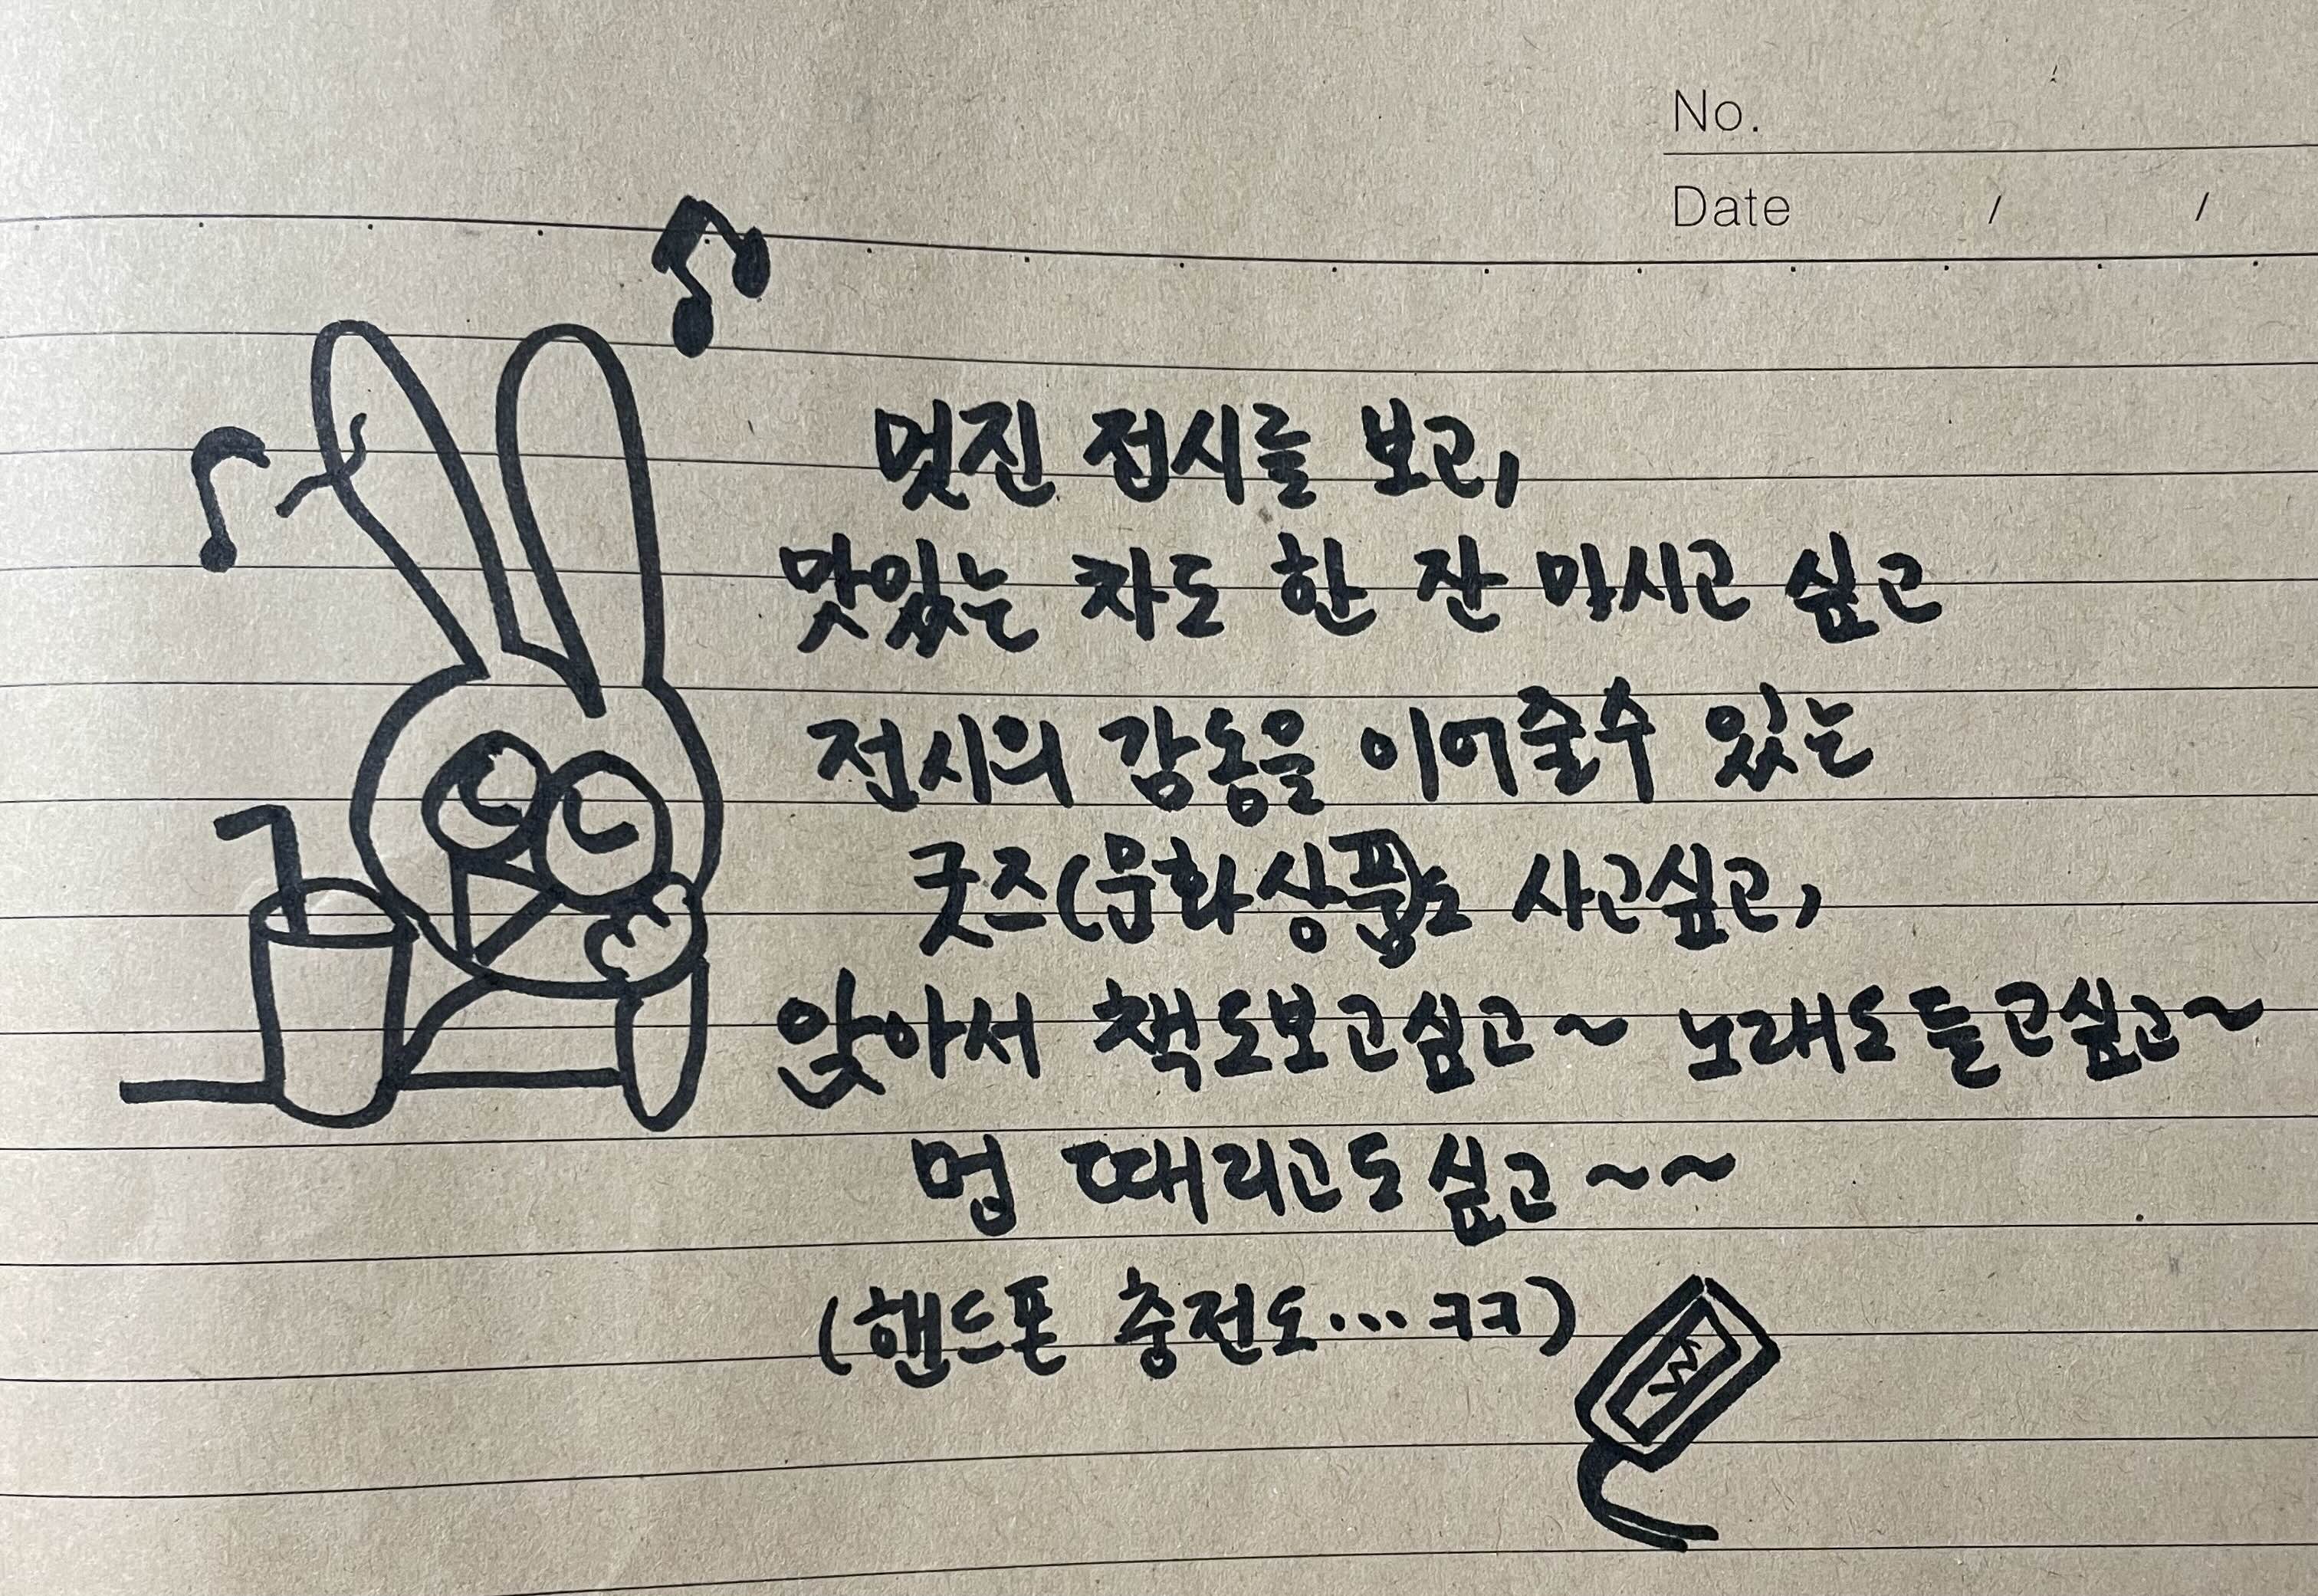 No.
Date / /
멋진 전시를 보고,
맛있는 차도 한 잔 마시고 싶고
전시의 감동을 이어줄수 있는
굿즈(문화상품)도 사고싶고,
앉아서 책도보고싶고~ 노래도듣고싶고~
멍 때리고도싶고~~
(핸드폰 충전도...ㅋㅋ)